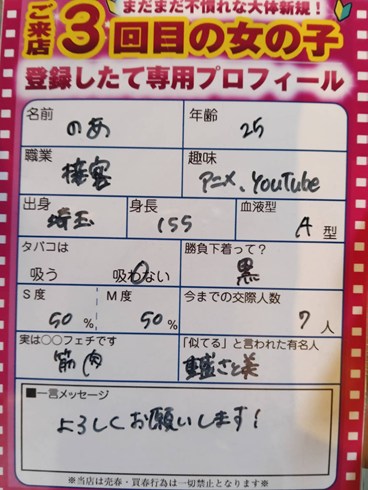 まだまだ不慣れな大体新規！
ご来店3回目の女の子
登録したて専用プロフィール
名前 のあ 年齢 25
職業 接客 趣味 アニメ、YouTube
出身 埼玉 身長 155 血液型 A型
タバコは 勝負下着って？
吸う 吸わない 黒
S度 M度 今までの交際人数
50% 50% 7人
実は○○フェチです 「似てる」と言われた有名人
筋肉 さと美
■一言メッセージ
よろしくお願いします！
※当店は売春・買春行為は一切禁止となります※